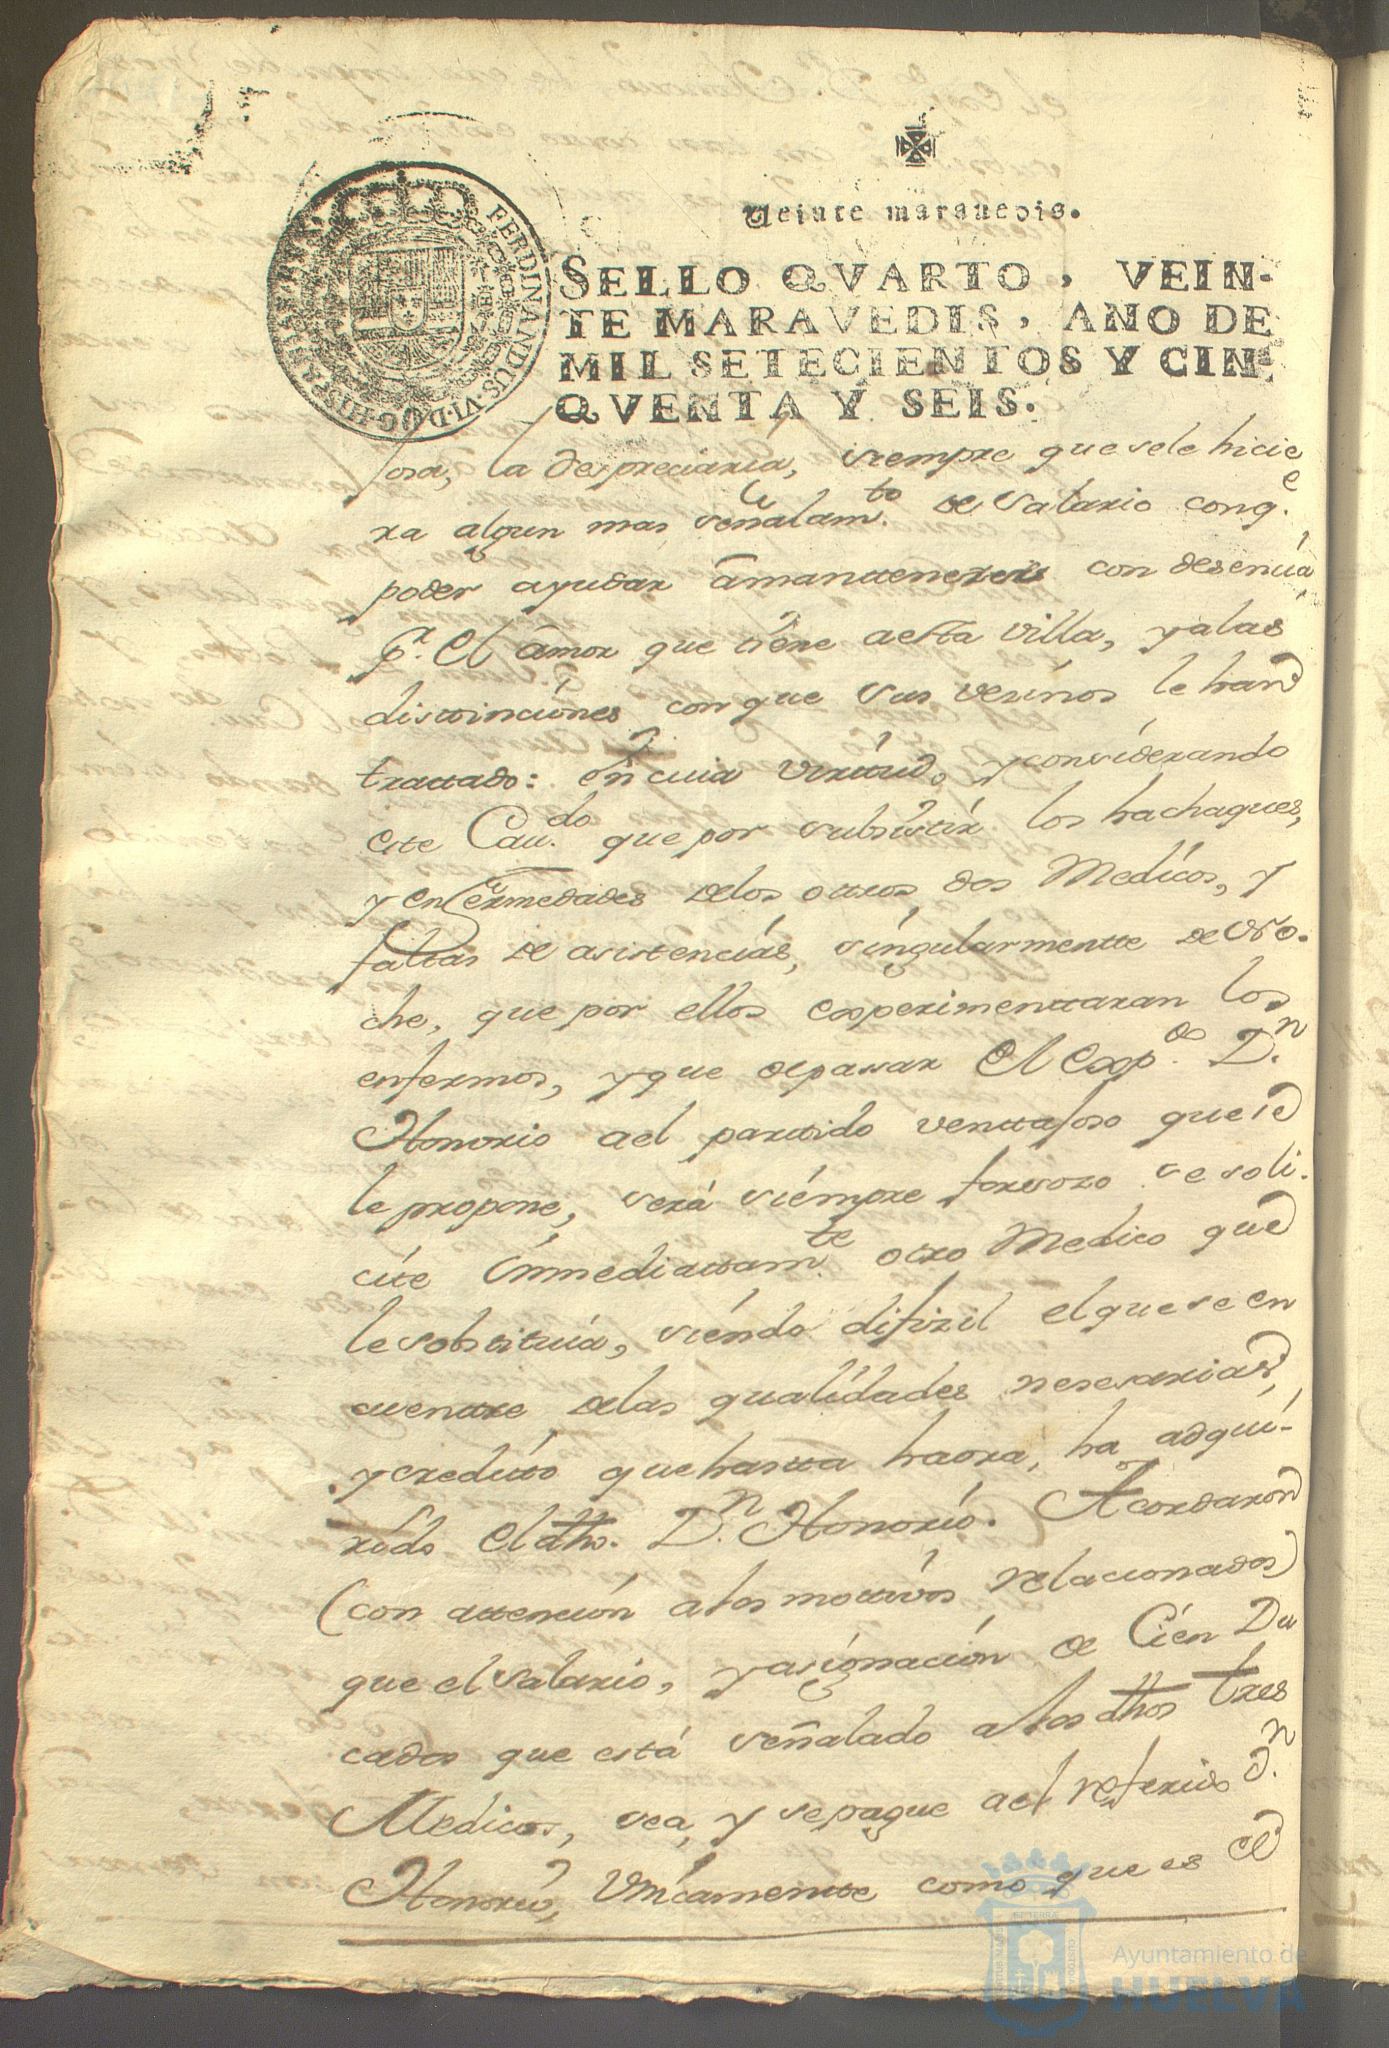 Veinte maravedis.
SELLO QVARTO, VEIN-
TE MARAVEDIS, AÑO DE
MIL SETECIENTOS Y CIN-
QVENTA Y SEIS.
FERDINANDUS·VI·D·G·HISPANIAR·REX
losa, la despreciaria, siempre que sele hicie
ra algun mas señalam.to de salario conq.e
poder ayudar amanttenerse con desencia
p.r el amor que tiene aesta villa, yalas
distoinciones con que sus vesinos le han
trattado: en cuia virtud, y considerando
este Cau.do que por subsistir los hachaques,
y enfermedades delos ottros dos Medicos, y
faltas de asistencias, singularmentte de no-
che, que por ellos experimenttaran los
enfermos, y que depasar el exp.do D.n
Honorio ael parttido venttajoso que se
le propone, será siempre forsoso se soli-
cite immediattam.te otro Medico que
le sobstituia, siendo difizil el que se en
cuenttre delas qualidades nesesarias,
y creditto que hastta haora, ha adqui-
rido el dho. D.n Honorio. Acordaron
(con attencion alos mottivos relacionados)
que el salario, y asignacion de Cien Du
cados que está señalado a los dhos tres
Medicos, sea, y sepague ael referido D.n
Honorio, Unicamentte como que es el
Ayuntamiento de
HUELVA